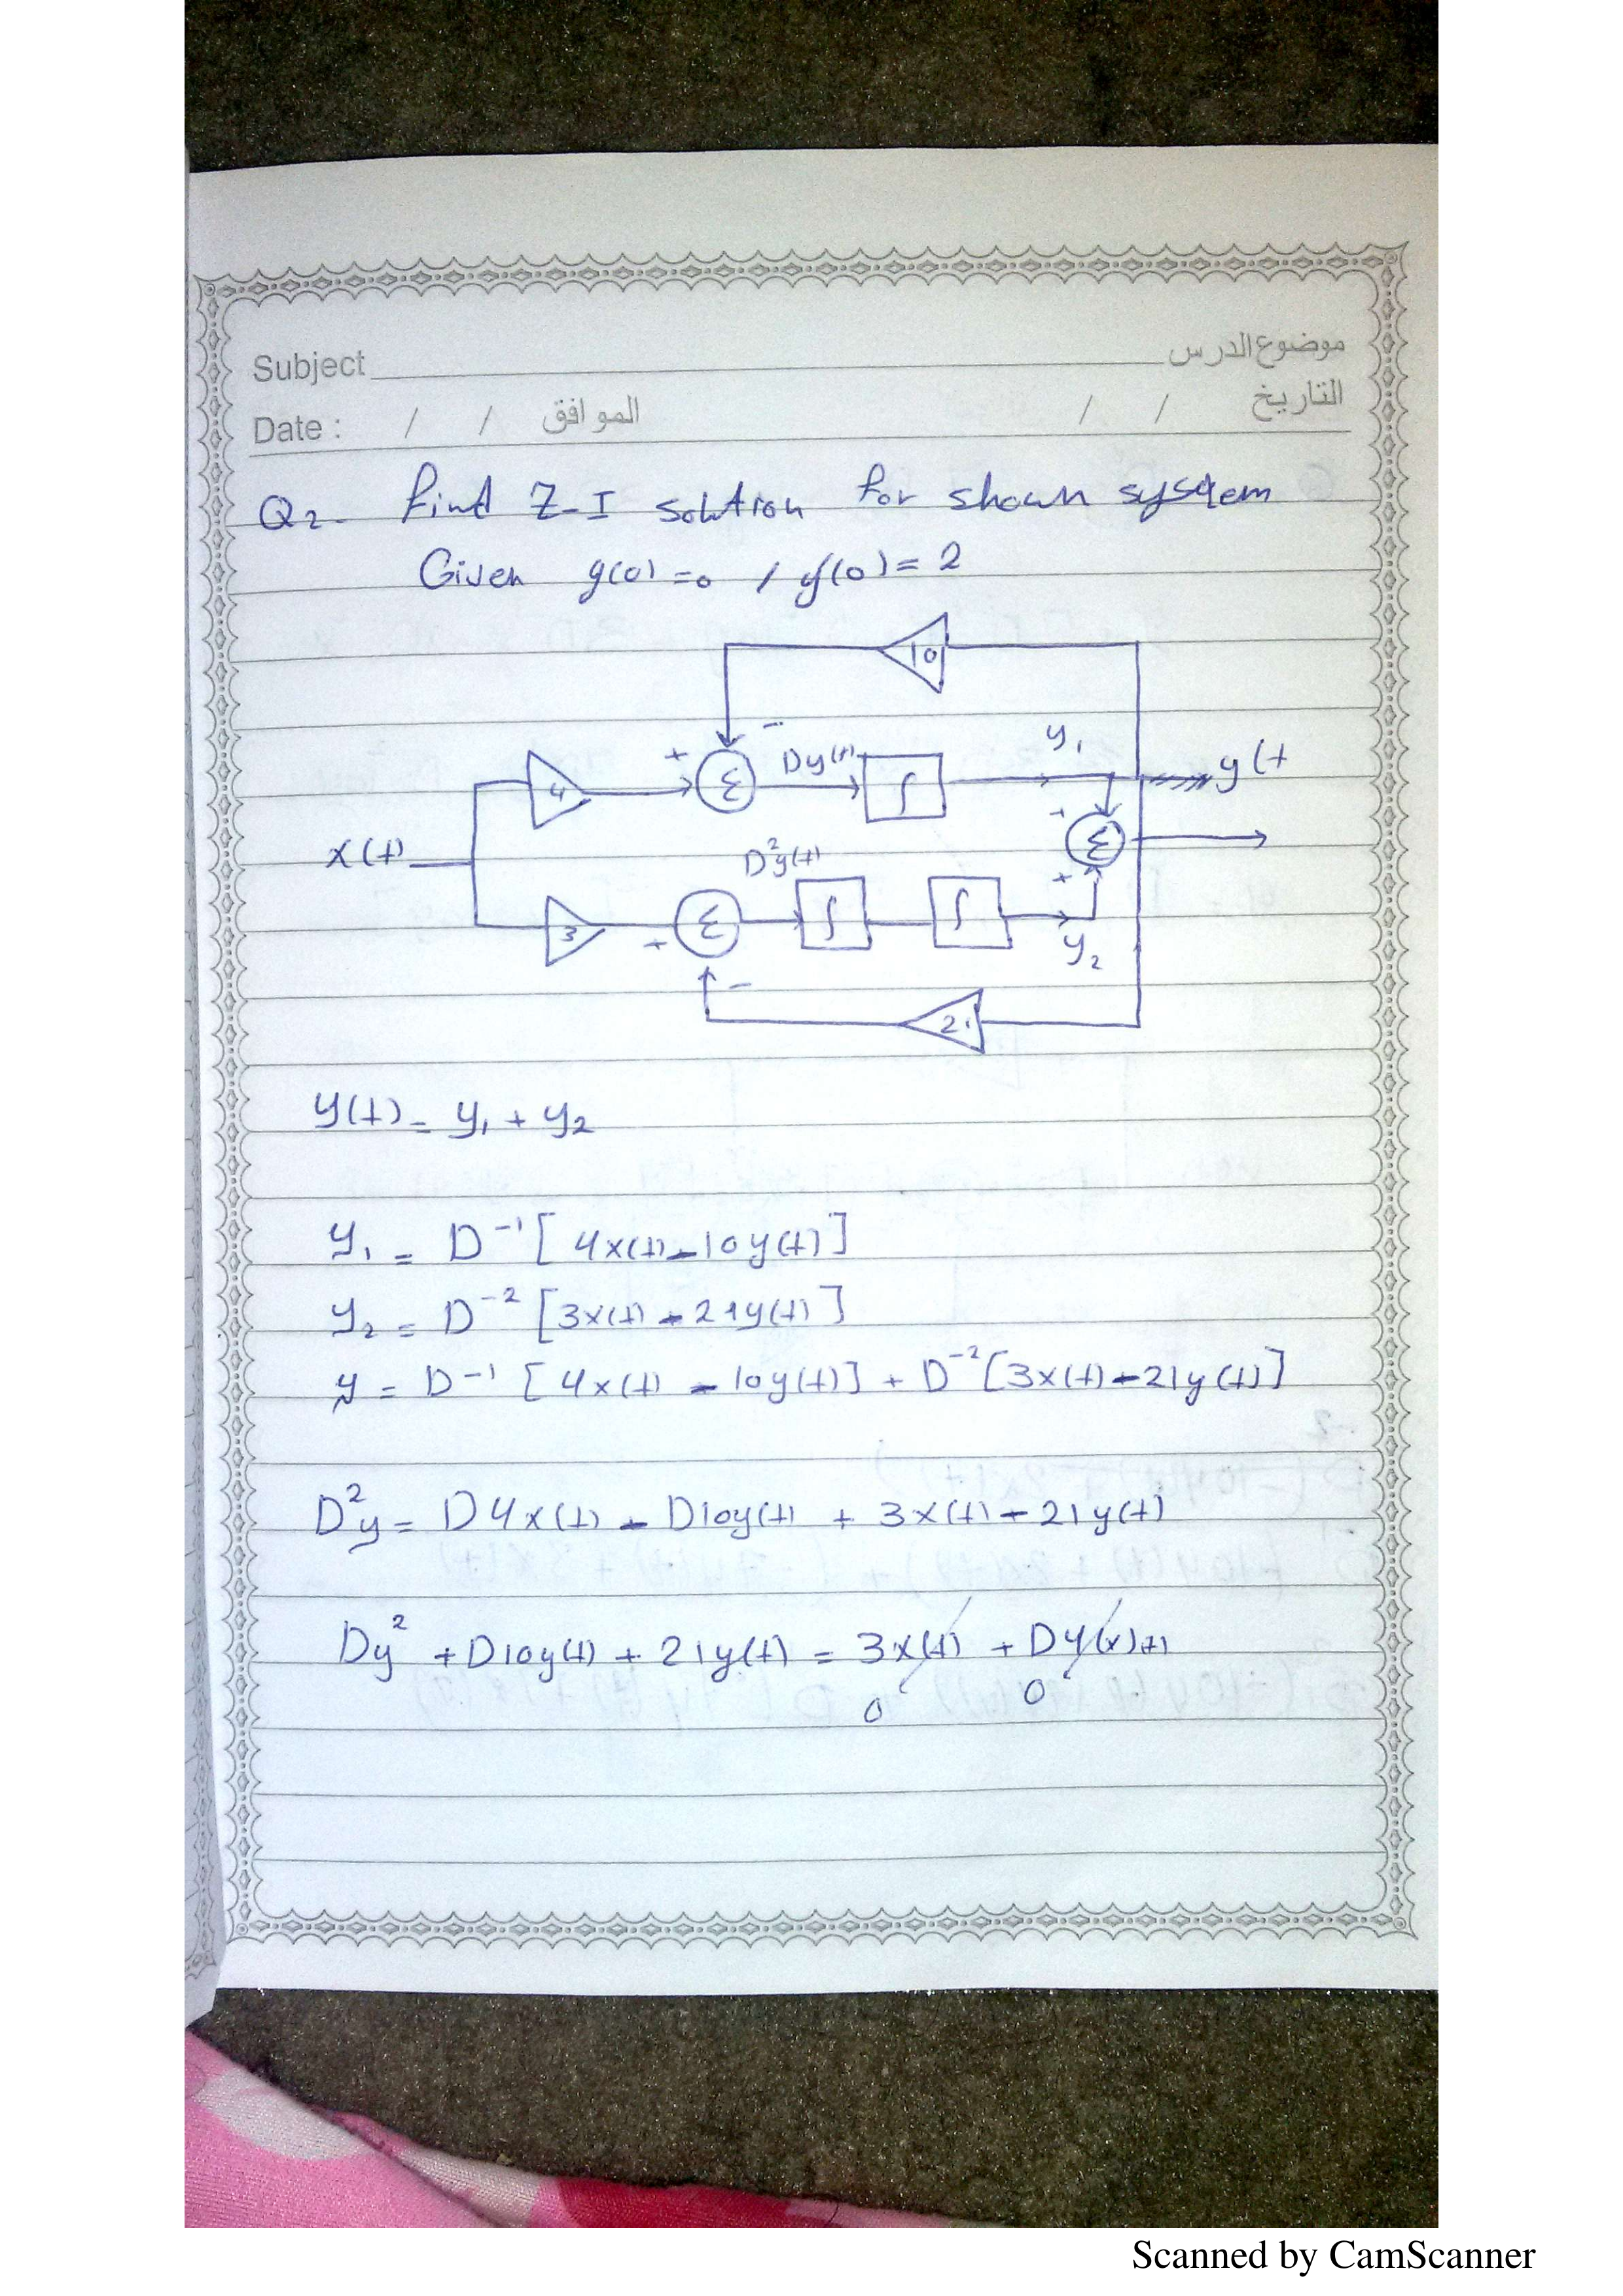 Subject موضوع الدرس
Date : / / الموافق / / التاريخ
Q2- Find Z-I solution for shown system
Given y(0) = 0 / y'(0) = 2
10
-
y1
+ Dy(t) y(t
4 Σ ∫
+
x(t) Σ
D²y(t)
+
3 Σ ∫ ∫
+ y2
-
21
y(t) = y1 + y2
y1 = D⁻¹ [ 4x(t) - 10y(t) ]
y2 = D⁻² [ 3x(t) - 21y(t) ]
y = D⁻¹ [ 4x(t) - 10y(t) ] + D⁻² [ 3x(t) - 21y(t) ]
D²y = D4x(t) - D10y(t) + 3x(t) - 21y(t)
Dy² + D10y(t) + 21y(t) = 3x(t) + D4(x)(t)
0 0
Scanned by CamScanner